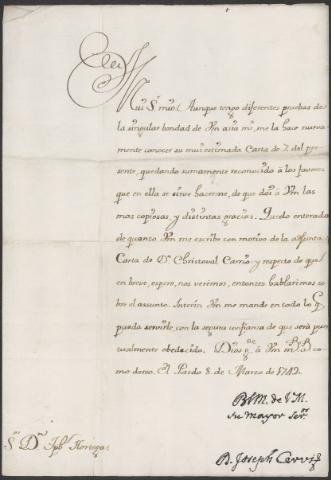 Mui S.r mio. Aunque tengo diferentes pruebas de
la singular bondad de Vm. acia mi, me la hace nueva
mente conocer su mui estimada Carta de 7. del pre
sente, quedando sumamente reconocido à los favores
que en ella se sirve hacerme, de que doi à Vm. las
mas copiosas, y distintas gracias. Quedo enterado
de quanto Vm. me escribe con motivo de la adjunta
Carta de D.n Christoval y respecto de que
en breve, espero, nos veremos, entonces hablaremos so
bre el assunto. Interin Vm. me mande en todo lo q.
pueda servirle, con la segura confianza de que será pun
tualmente obedecido. Dios g.e à Vm. m.s a.s co
mo deseo. El Pardo 8. de Marzo de 1742.
BLM. de VM.
su mayor ser.or
D. Joseph
S.r D.n Jph. Noriega